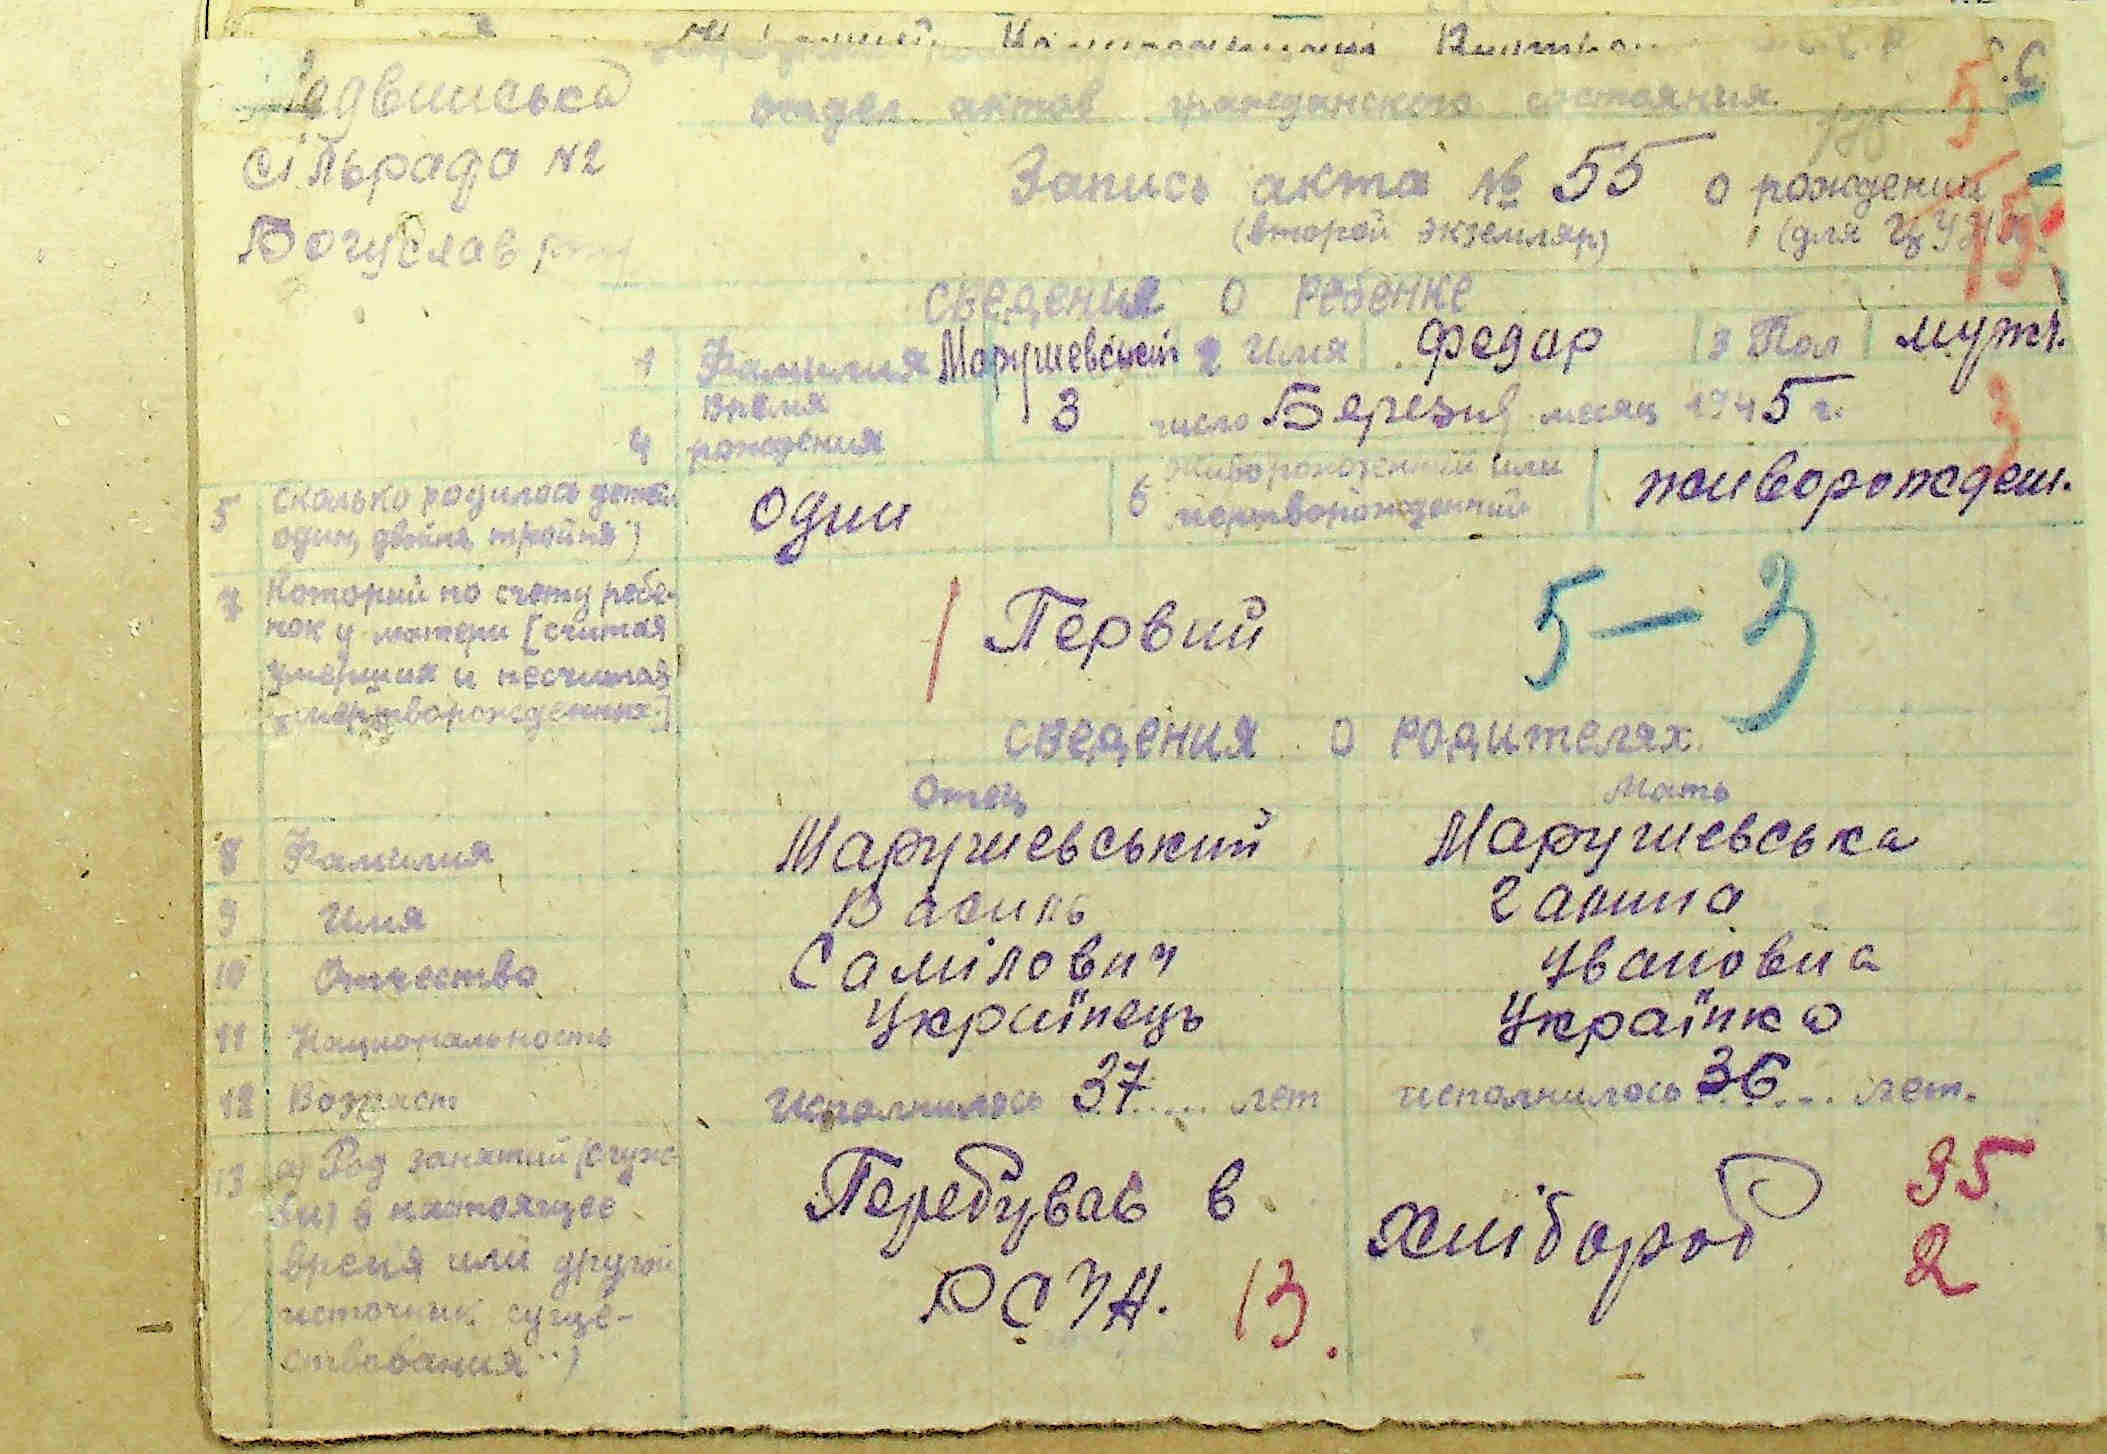 сільрада №2
Богуслав
отдел актов гражданского состояния.
Запись акта № 55 о рождении
(второй экземпляр) (для ЦУ
сведения о ребенке
1 Фамилия Марушевський 2 Имя Федар 3 Пол мужч.
4 Время рождения 3 число Березня месяц 1945 г.
5 Сколько родилось детей
один, двойня, тройня) один
6 Живорожденний или
мертворожденний живорожден.
7 Которий по счету ребе-
нок у матери [считая
умерших и несчитая
мертворожденних.] 1 Первий 5-3
сведения о родителях.
Отец Мать
8 Фамилия Марушевський Марушевська
9 Имя Василь Ганна
10 Отчество Самілович Ивановна
11 Национальность Українець Українка
12 Возраст исполнилось 37 лет исполнилось 36 лет.
13 а) Род занятий (служ-
би) в настоящее
время или другой
источник суще-
ствования..)
Перебував в
РСЧА. 13.
Хлібороб 95
2